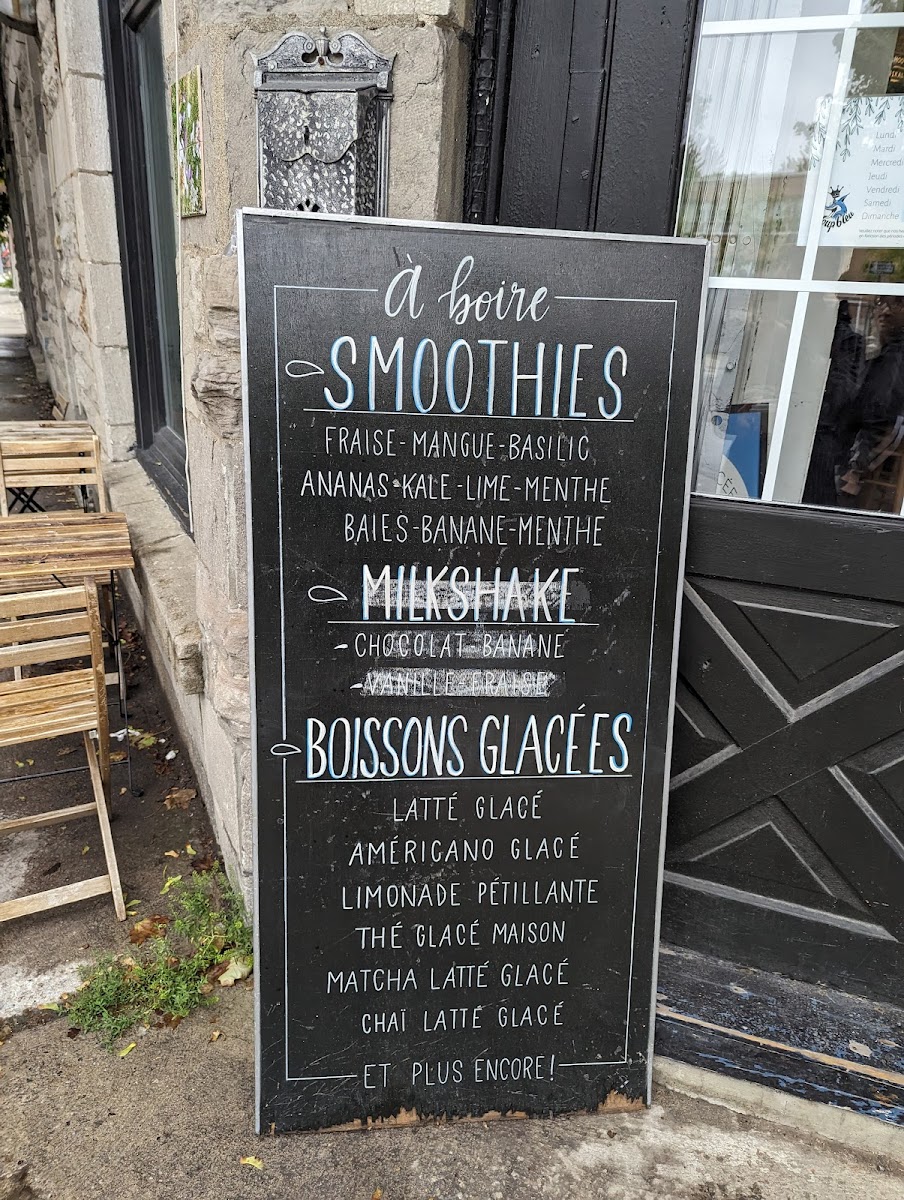 à boire
SMOOTHIES
FRAISE-MANGUE-BASILIC
ANANAS-KALE-LIME-MENTHE
BAIES-BANANE-MENTHE
MILKSHAKE
-CHOCOLAT-BANANE
-VANILLE-FRAISE
BOISSONS GLACÉES
LATTÉ GLACÉ
AMÉRICANO GLACÉ
LIMONADE PÉTILLANTE
THÉ GLACÉ MAISON
MATCHA LATTÉ GLACÉ
CHAÏ LATTÉ GLACÉ
ET PLUS ENCORE!
Lundi
Mardi
Mercredi
Jeudi
Vendredi
Samedi
Dimanche